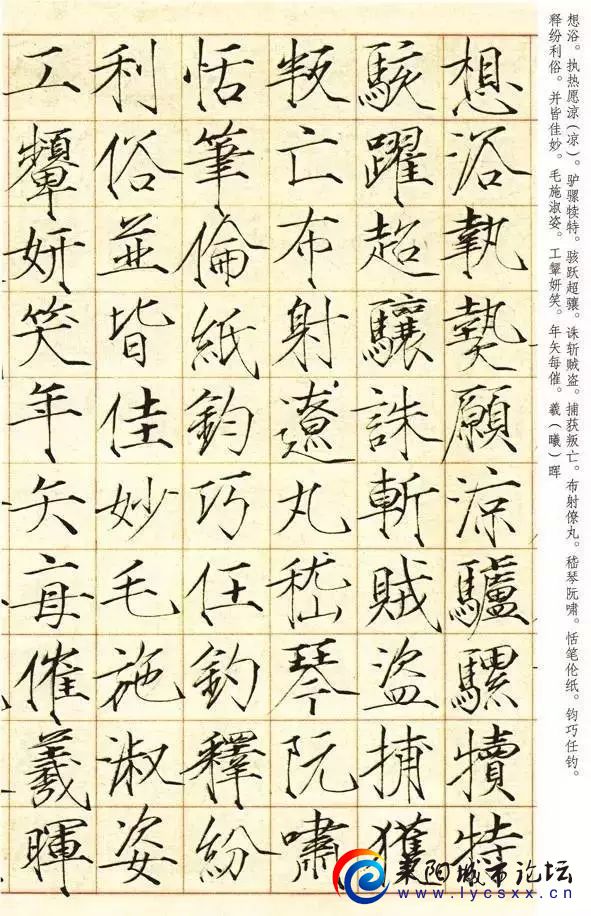 想浴。执热愿涼（凉）。驴骡犊特。骇跃超骧。诛斩贼盗。捕获叛亡。布射僚丸。嵇琴阮啸。恬笔伦纸。钧巧任钓。
释纷利俗。并皆佳妙。毛施淑姿。工颦妍笑。年矢每催。羲（曦）晖
想浴執熱願涼驢騾犢特
駭躍超驤誅斬賊盜捕獲
叛亡布射遼丸嵇琴阮嘯
恬筆倫紙鈞巧任釣釋紛
利俗並皆佳妙毛施淑姿
工顰妍笑年矢每催羲暉
阳城市论坛
www.lycsxx.cn